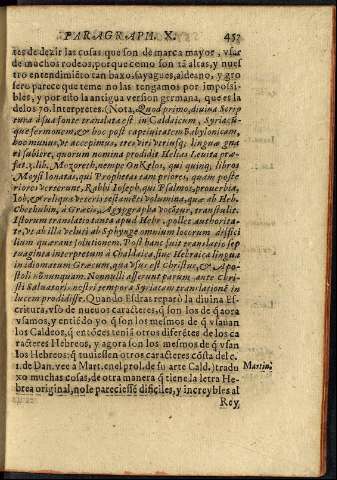 PARAGRAPH. X. 457
tes de dezir las cosas que son de marca mayor, vsar
de muchos rodeos, porque como son tã altas, y nues
tro entendimiẽto tan baxo, sayagues, aldeano, y gro
sero parece que teme no las tengamos por imposi-
bles, y por esto la antigua version germana, que es la
de los 70. Interpretes. (Nota, Quod primo, diuina Scrip
rura à sua fonte translata est in Caldaicum, Syriacũ-
que sermonem, & hoc post captiuitatem Babylonicam,
hoc munus, vt accepimus, tres viri vtriusq; linguæ gna
ri subiere, quorum nomina prodidit Helias Leuita præ-
fat. 3. lib. Mozoreth, nempe OnKelos, qui quinq; libros
Moysi Ionatas, qui Prophetas tam priores, quàm poste
riores verterunt, Rabbi Ioseph, qui Psalmos, prouerbia,
Iob, & reliqua veteris testamẽti volumina, quæ ab Heb.
Chethubin, à Græcis, Agyographa vocãtur, transtulit.
Istorum translatio tanta apud Hebr. pollet authorita-
te, vt ab illa veluti ab Sphynge omnium locorum diffici
lium quærant solutionem. Post hanc fuit translatio sep
tuaginta interpretum à Chaldaica siue Hebraica lingua
in idiomatum Græcum, qua vsus est Christus, & Apo-
stoli nõnunquam. Nonnulli asserunt parum ante Chri-
sti Saluatoris nostri tempora Syriacam translationẽ in
lucem prodidisse. Quando Esdras reparò la diuina Es-
critura, vso de nueuos caracteres, q̃ son los de q̃ aora
vsamos, y entiẽdo yo q̃ son los mesmos de q̃ vsauan
los Caldeos, q̃ entõces teniã otros diferẽtes de los ca
racteres Hebreos, y agora son los mesmos de q̃ vsan
los Hebreos: q̃ tuuiessen otros caracteres cõsta del c.
1. de Dan. vee a Mart. en el prol. de su arte Cald.) tradu Martin.
xo muchas cosas, de otra manera q̃ tiene la letra He-
brea original, no le pareciesse dificiles, y increybles al
Rey